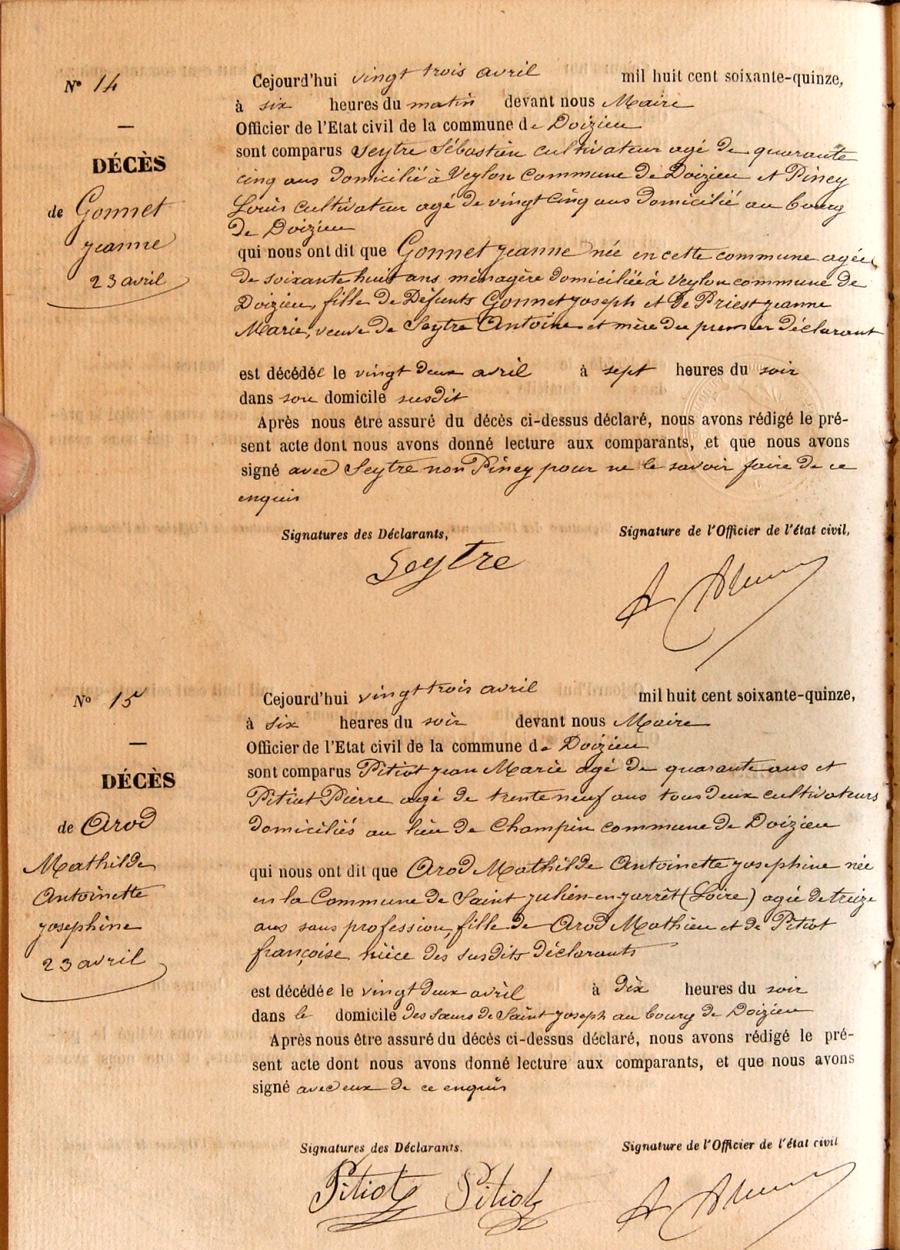 N° 14
DÉCÈS
de Gonnet
jeanne
23 avril
Cejourd'hui vingt trois avril mil huit cent soixante-quinze,
à six heures du matin devant nous Maire
Officier de l'Etat civil de la commune de Doizieu
sont comparus Seytre Sébastien cultivateur agé de quarante
cinq ans domicilié à Veylon commune de Doizieu et Piney
Louis cultivateur agé de vingt cinq ans domicilié au bourg
de Doizieu
qui nous ont dit que Gonnet jeanne née en cette commune agée
de soixante huit ans ménagère domiciliée à Veylon commune de
Doizieu, fille de Défunts Gonnet joseph et de Priest jeanne
Marie, veuve de Seytre Antoine et mère du premier déclarant
est décédée le vingt deux avril à sept heures du soir
dans son domicile susdit
Après nous être assuré du décès ci-dessus déclaré, nous avons rédigé le pré-
sent acte dont nous avons donné lecture aux comparants, et que nous avons
signé avec Seytre non Piney pour ne le savoir faire de ce
enquis
Signatures des Déclarants, Signature de l'Officier de l'état civil,
Seytre
N° 15
DÉCÈS
de Arod
Mathilde
Antoinette
josephine
23 avril
Cejourd'hui vingt trois avril mil huit cent soixante-quinze,
à six heures du soir devant nous Maire
Officier de l'Etat civil de la commune de Doizieu
sont comparus Pitiot jean Marie agé de quarante ans et
Pitiot Pierre agé de trente neuf ans tous deux cultivateurs
domiciliés au lieu de Champin commune de Doizieu
qui nous ont dit que Arod Mathilde Antoinette josephine née
en la Commune de Saint julien-en-jarrêt (Loire) agée de treize
ans sans profession, fille de Arod Mathieu et de Pitiot
françoise, nièce des susdits déclarants
est décédée le vingt deux avril à dix heures du soir
dans le domicile des sœurs de Saint joseph au bourg de Doizieu
Après nous être assuré du décès ci-dessus déclaré, nous avons rédigé le pré-
sent acte dont nous avons donné lecture aux comparants, et que nous avons
signé avec eux de ce enquis
Signatures des Déclarants. Signature de l'Officier de l'état civil
Pitiot Pitiot